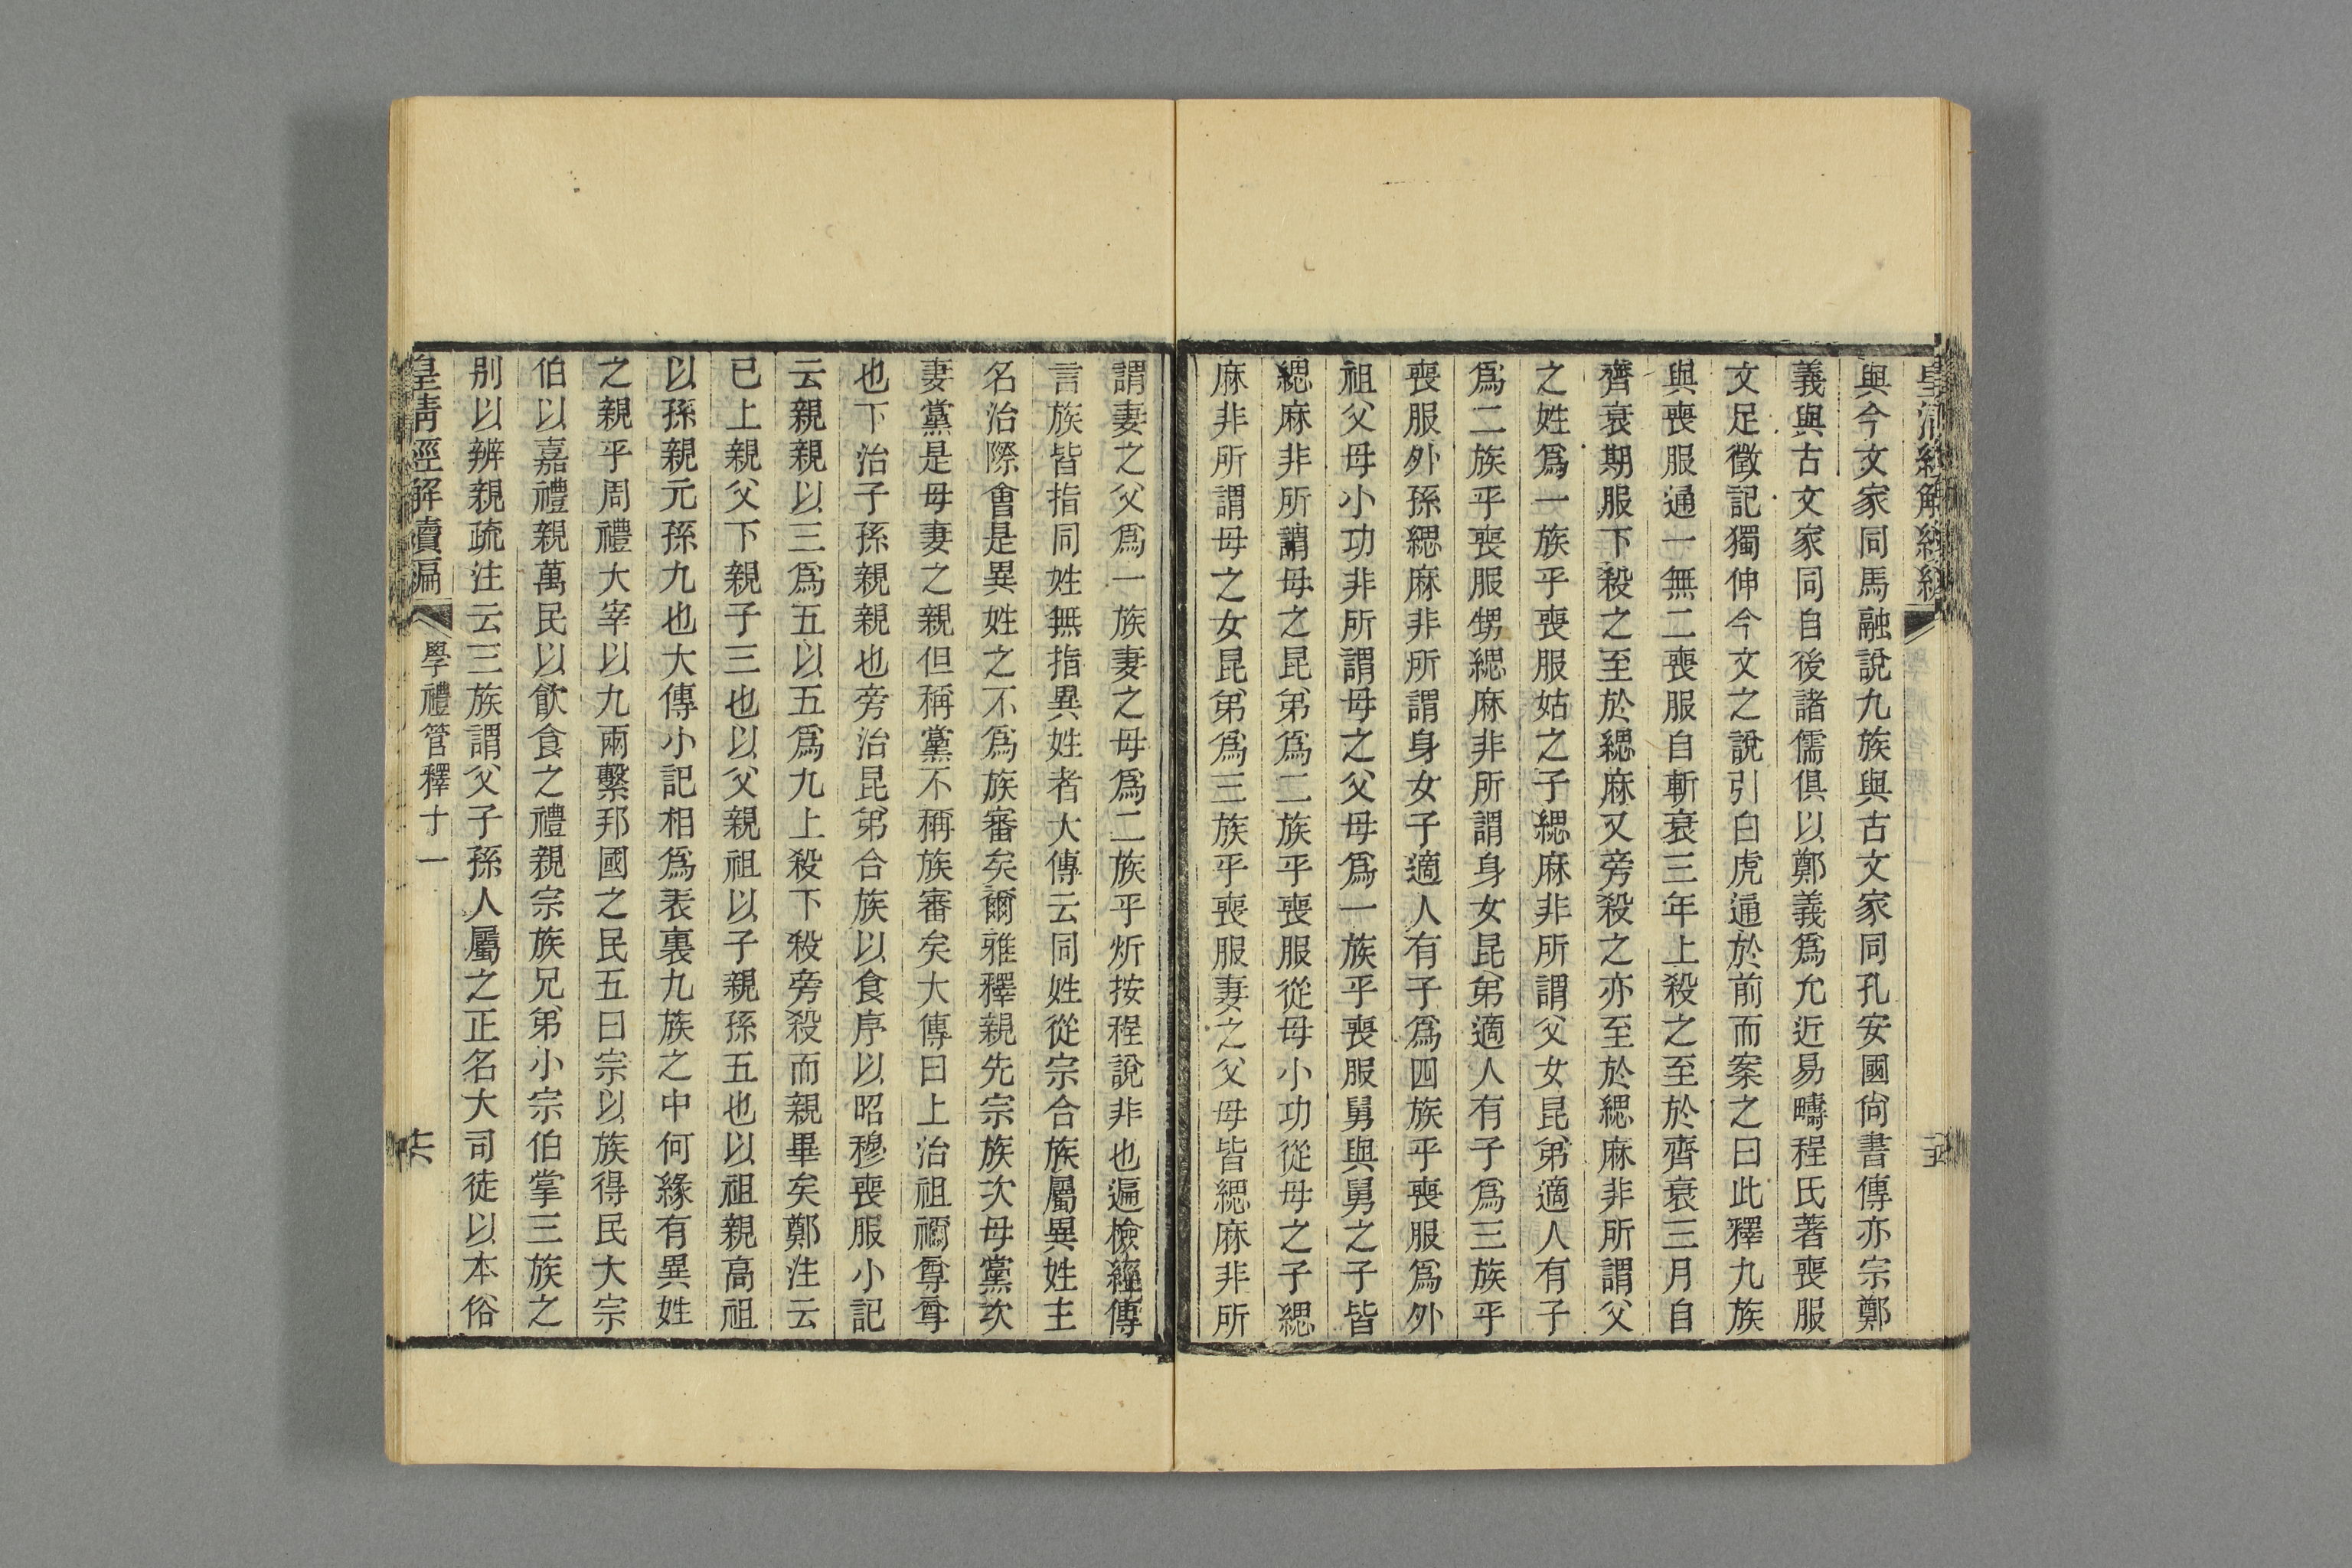 與今文家同馬融說九族與古文家同孔安國尙書傳亦宗鄭
義與古文家同自後諸儒俱以鄭義爲允近易疇程氏著喪服
文足徵記獨伸今文之說引白虎通於前而案之曰此釋九族
與喪服通一無二喪服自斬衰三年上殺之至於齊衰三月自
齊衰期服下殺之至於緦麻又旁殺之亦至於緦麻非所謂父
之姓爲一族乎喪服姑之子緦麻非所謂父女昆弟適人有子
爲二族乎喪服甥緦麻非所謂身女昆弟適人有子爲三族乎
喪服外孫緦麻非所謂身女子適人有子爲四族乎喪服爲外
祖父母小功非所謂母之父母爲一族乎喪服舅與舅之子皆
緦麻非所謂母之昆弟爲二族乎喪服從母小功從母之子緦
麻非所謂母之女昆弟爲三族乎喪服妻之父母皆緦麻非所
謂妻之父爲一族妻之母爲二族乎炘按程說非也遍檢經傳
言族皆指同姓無指異姓者大傳云同姓從宗合族屬異姓主
名治際會是異姓之不爲族審矣爾雅釋親先宗族次母黨次
妻黨是母妻之親但稱黨不稱族審矣大傳曰上治祖禰尊尊
也下治子孫親親也旁治昆弟合族以食序以昭穆喪服小記
云親親以三爲五以五爲九上殺下殺旁殺而親畢矣鄭注云
已上親父下親子三也以父親祖以子親孫五也以祖親高祖
以孫親元孫九也大傳小記相爲表裏九族之中何緣有異姓
之親乎周禮大宰以九兩繫邦國之民五曰宗以族得民大宗
伯以嘉禮親萬民以飮食之禮親宗族兄弟小宗伯掌三族之
別以辨親疏注云三族謂父子孫人屬之正名大司徒以本俗
皇淸經解續編 學禮管釋十一 六